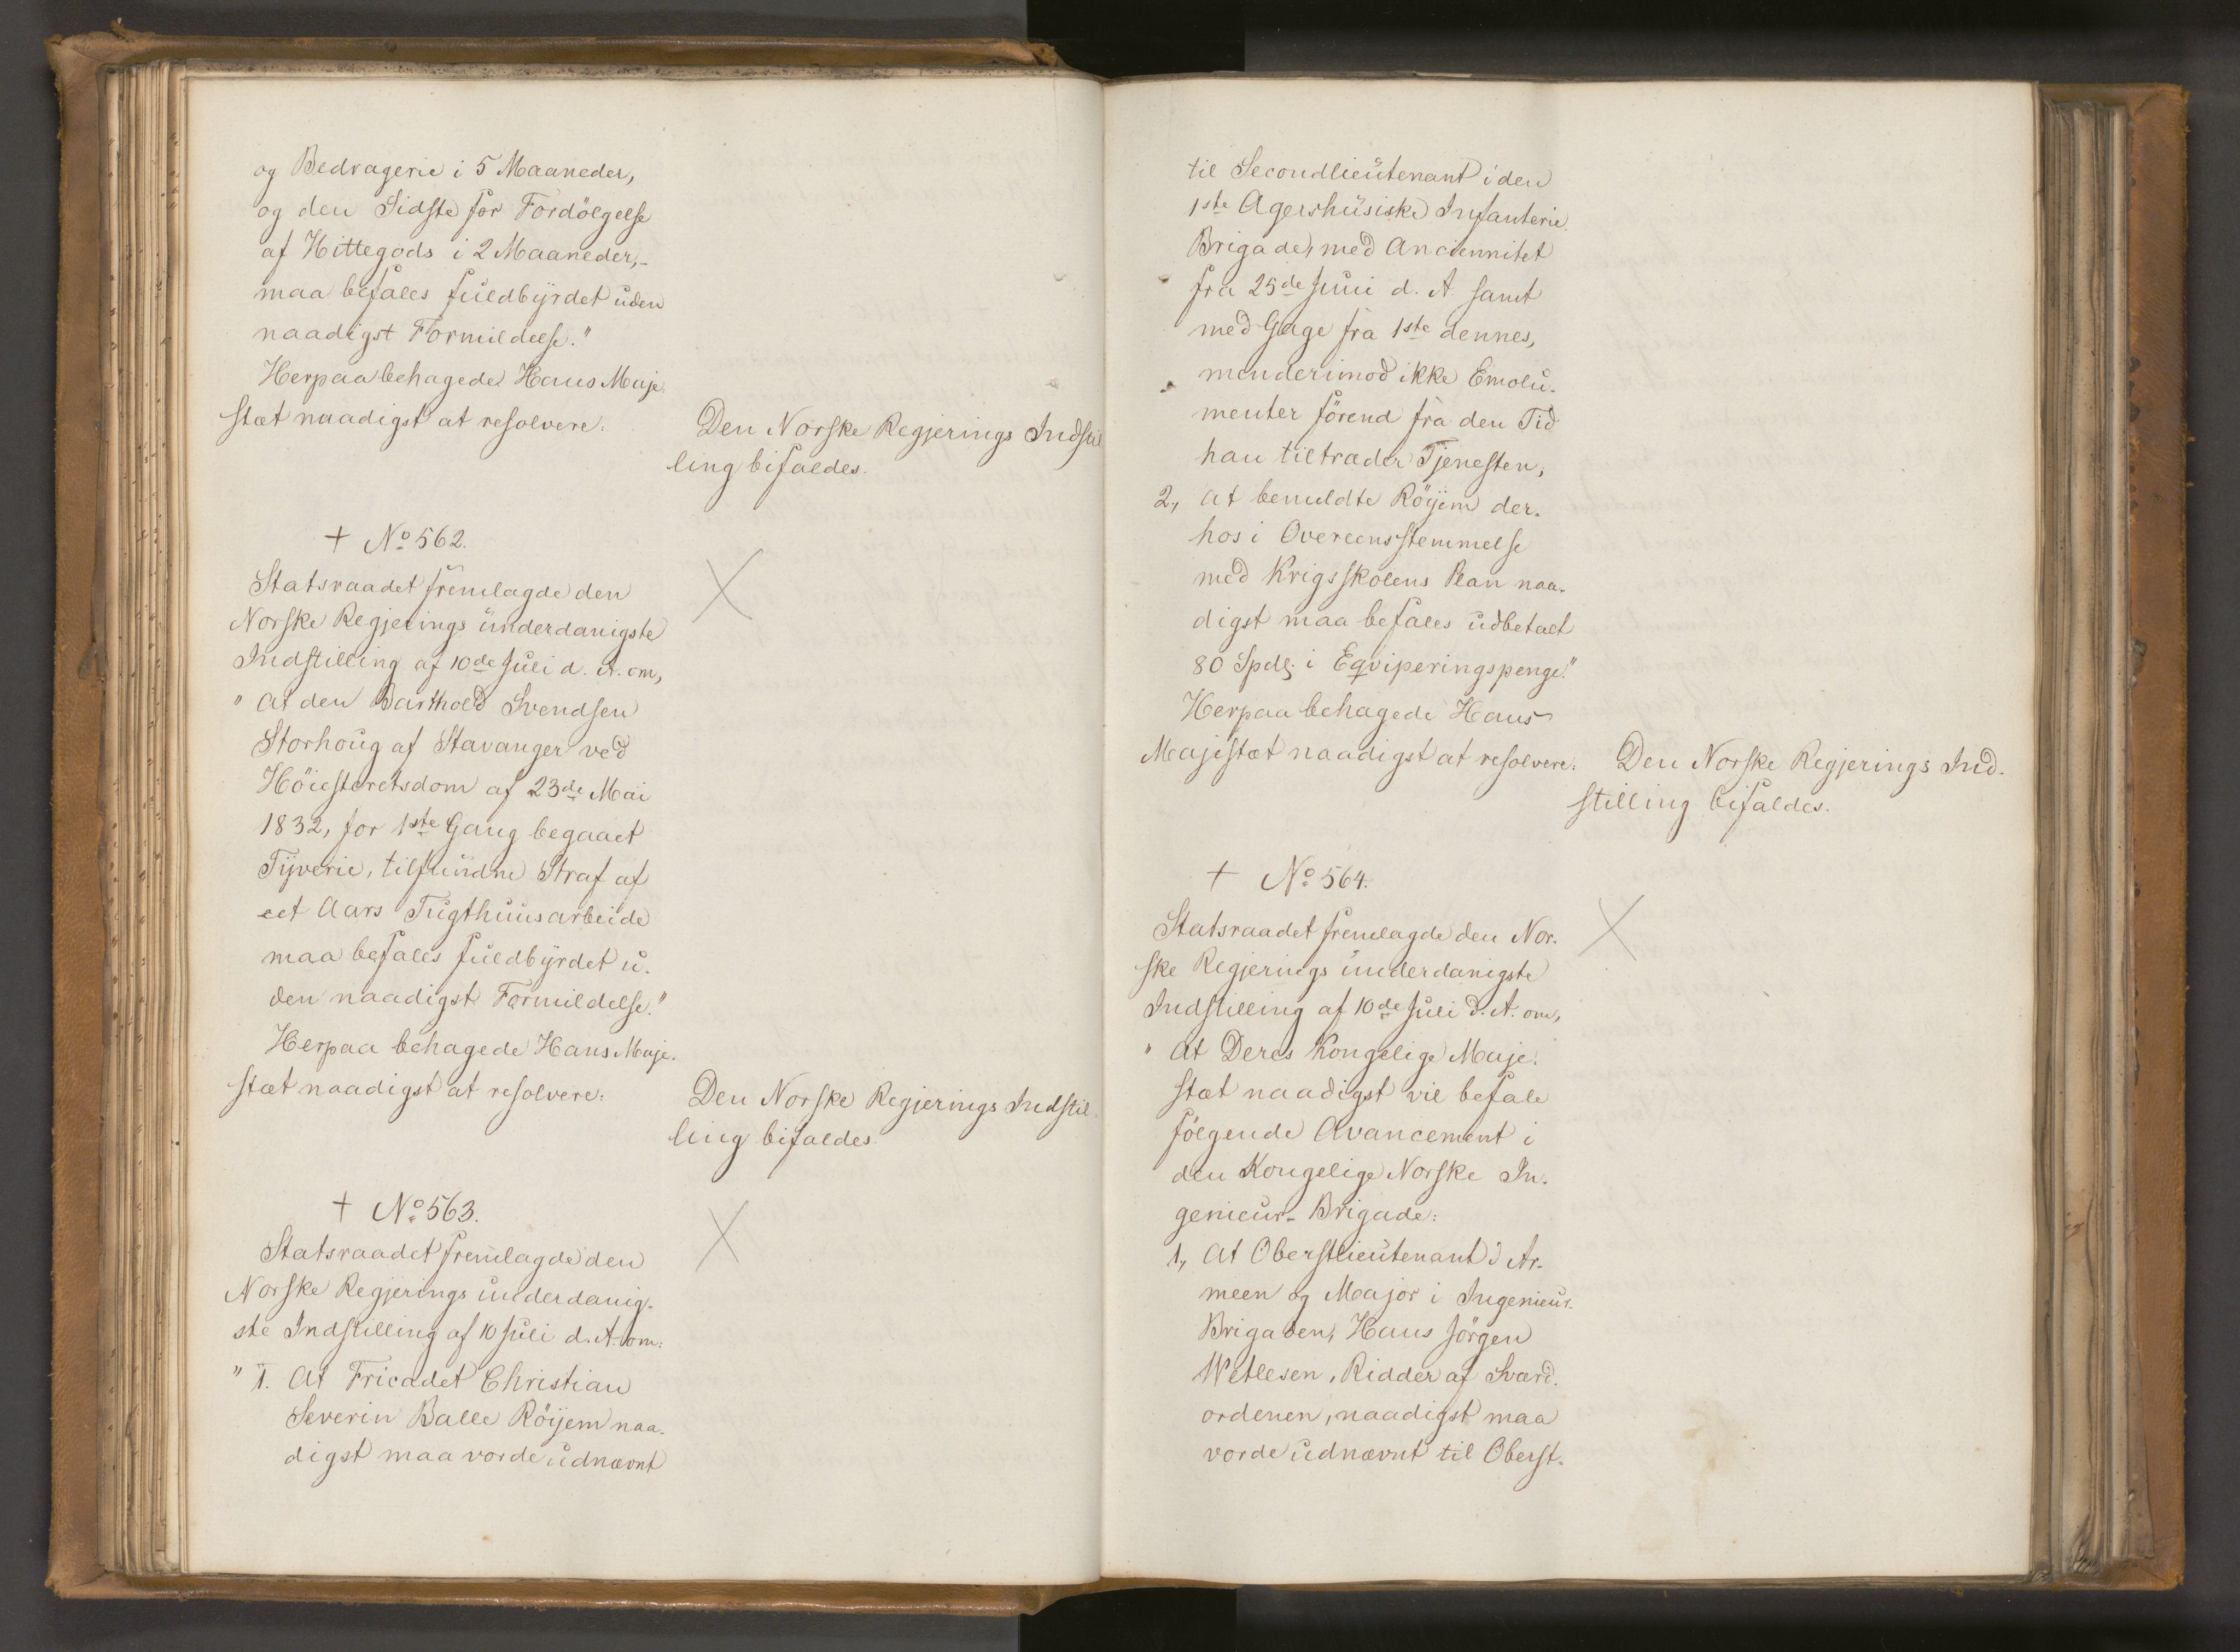 og Bedragerie i 5 Maaneder,
og den Sidste for Fordölgelse
af Hittegods i 2 Maaneder,-
maa befales fuldbyrdet uden
naadigst Formildelse."
Herpaa behagede Hans Maje-
stæt naadigst at resolvere:
Den Norske Regjerings Indstil
ling bifaldes.
+ No 562.
Statsraadet fremlagde den
Norske Regjerings underdanigste
Indstilling af 10de Juli d. A. om,
" At den Barthold Svendsen
Storhoug af Stavanger ved
Höiesteretsdom af 23de Mai
1832, for 1ste Gang begaaet
Tyverie, tilfundne Straf af
eet Aars Tugthuusarbeide
maa befales fuldbyrdet u-
den naadigst Formildelse."
Herpaa behagede Hans Maje-
stæt naadigst at resolvere:
Den Norske Regjerings Indstil
ling bifaldes
+ No 563.
Statsraadet fremlagde den
Norske Regjerings underdanig-
ste Indstilling af 10 Juli d. A. om:
" 1. At Fricadet Christian
Severin Balle Röyem naa-
digst maa vorde udnævnt
til Secondlieutenant i den
1ste Agershusiske Infanterie
Brigade, med Anciennitet
fra 25de Juni d. A. samt
med Gage fra 1ste dennes,
menderimod ikke Emolu-
menter förend fra den Tid
han tiltræder Tjenesten;
2, At bemeldte Röyem der-
hos i Overeensstemmelse
med Krigsskolens Plan naa-
digst maa befales udbetalt
80 Spdl. i Eqviperingspenge."
Herpaa behagede Hans
Majestæt naadigst at resolvere:
Den Norske Regjerings Ind-
stilling bifaldes.
+ No 564.
Statsraadet fremlagde den Nor-
ske Regjerings underdanigste
Indstilling af 10de Juli d. A. om,
" At Deres Kongelige Maje-
stæt naadigst vil befale
fölgende Avancement i
den Kongelige Norske In-
genieur-Brigade:
1, At Oberstlieutenant i Ar-
meen og Major i Ingenieur-
Brigaden, Hans Jörgen
Wetlesen, Ridder af Sværd-
ordenen, naadigst maa
vorde udnævnt til Oberst-